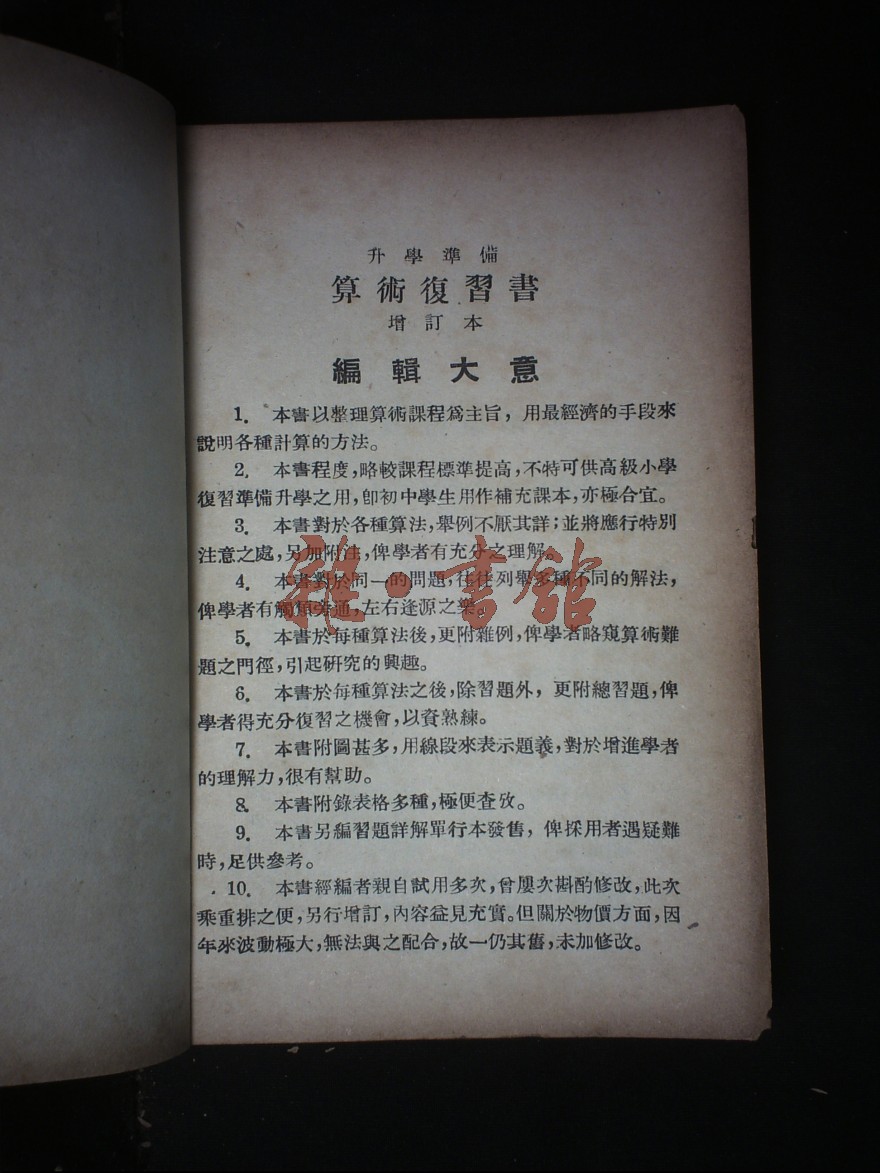 升學準備
算術復習書
增訂本
編輯大意
1. 本書以整理算術課程爲主旨，用最經濟的手段來
說明各種計算的方法。
2. 本書程度，略較課程標準提高，不特可供高級小學
復習準備升學之用，卽初中學生用作補充課本，亦極合宜。
3. 本書對於各種算法，舉例不厭其詳；並將應行特別
注意之處，另加附注，俾學者有充分之理解。
4. 本書對於同一的問題，往往列舉多種不同的解法，
俾學者有觸類旁通，左右逢源之樂。
5. 本書於每種算法後，更附雜例，俾學者略窺算術難
題之門徑，引起研究的興趣。
6. 本書於每種算法之後，除習題外，更附總習題，俾
學者得充分復習之機會，以資熟練。
7. 本書附圖甚多，用線段來表示題義，對於增進學者
的理解力，很有幫助。
8. 本書附錄表格多種，極便查攷。
9. 本書另編習題詳解單行本發售，俾採用者遇疑難
時，足供參考。
10. 本書經編者親自試用多次，曾屢次斟酌修改，此次
乘重排之便，另行增訂，內容益見充實。但關於物價方面，因
年來波動極大，無法與之配合，故一仍其舊，未加修改。
雜·書館